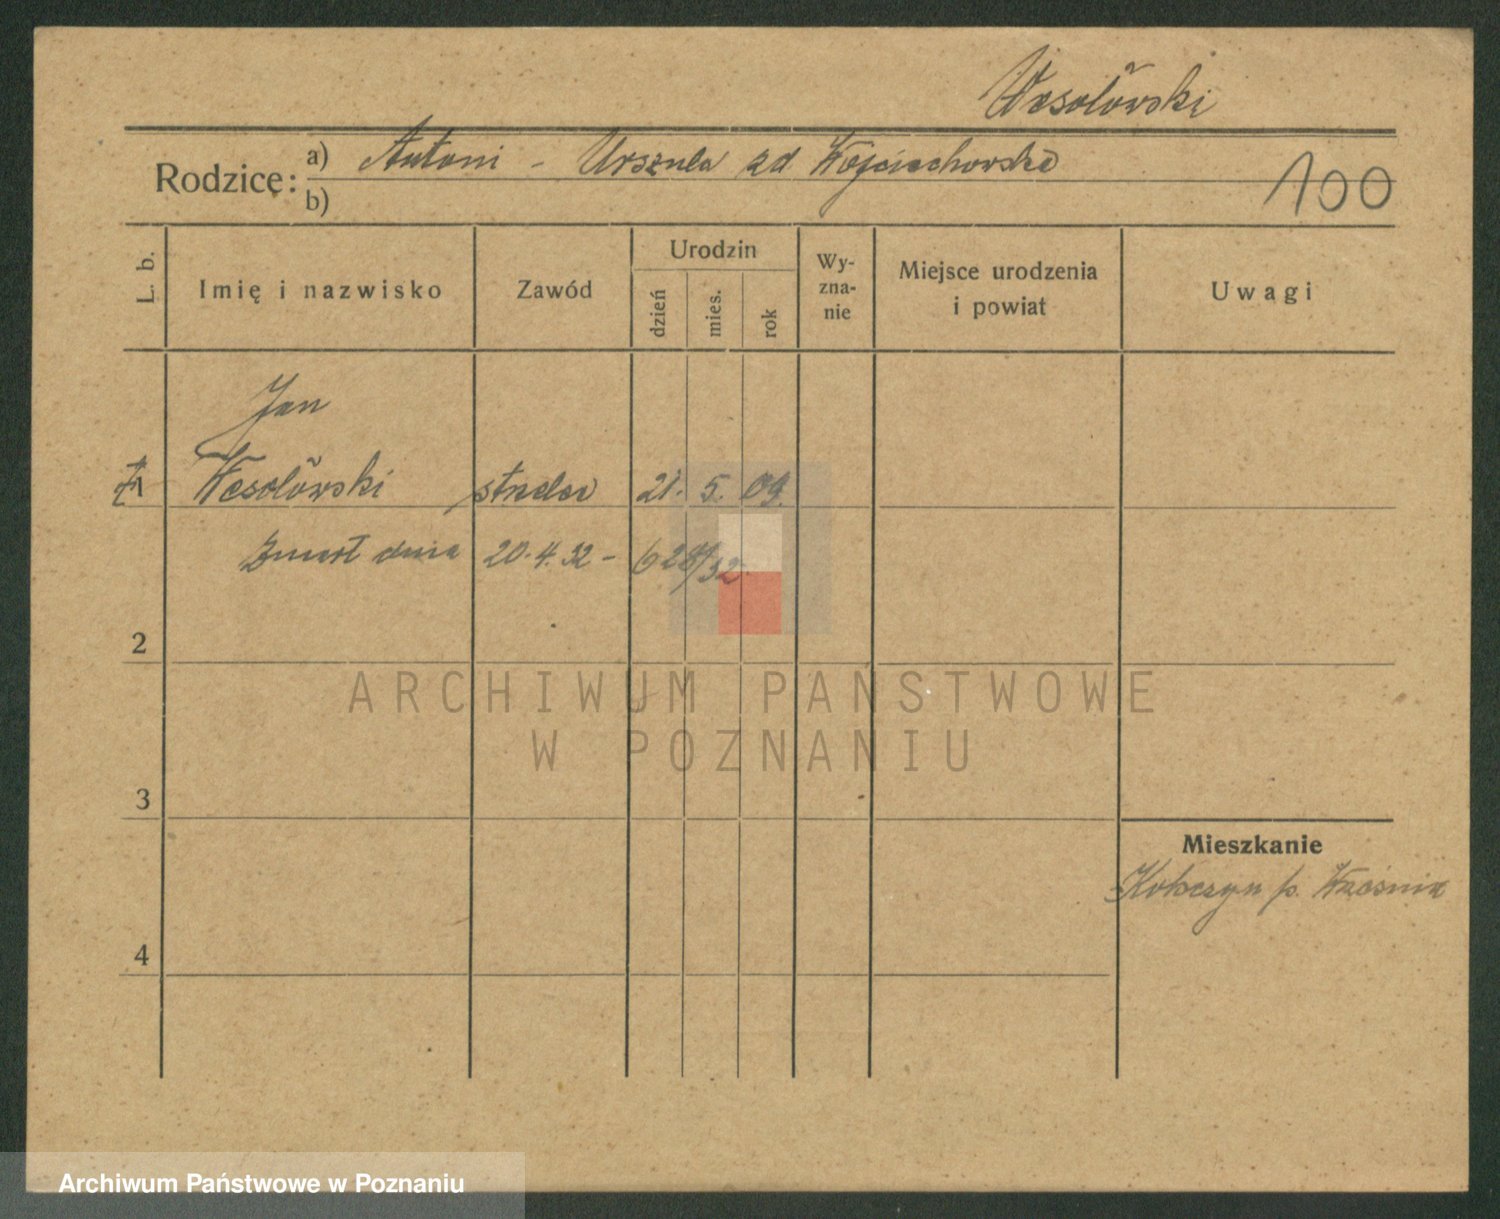 Wesołowski
Rodzice: a) Antoni - Urszula zd Wojciechowska
b)
100
L. b.
Imię i nazwisko
Zawód
Urodzin
dzień
mies.
rok
Wy-
zna-
nie
Miejsce urodzenia
i powiat
Uwagi
Jan
1 Wesołowski 21. 5. 09.
Zmarł dnia 20.4.32 - 628/32
2
ARCHIWUM PAŃSTWOWE
W POZNANIU
3
Mieszkanie
p. Września
4
Archiwum Państwowe w Poznaniu